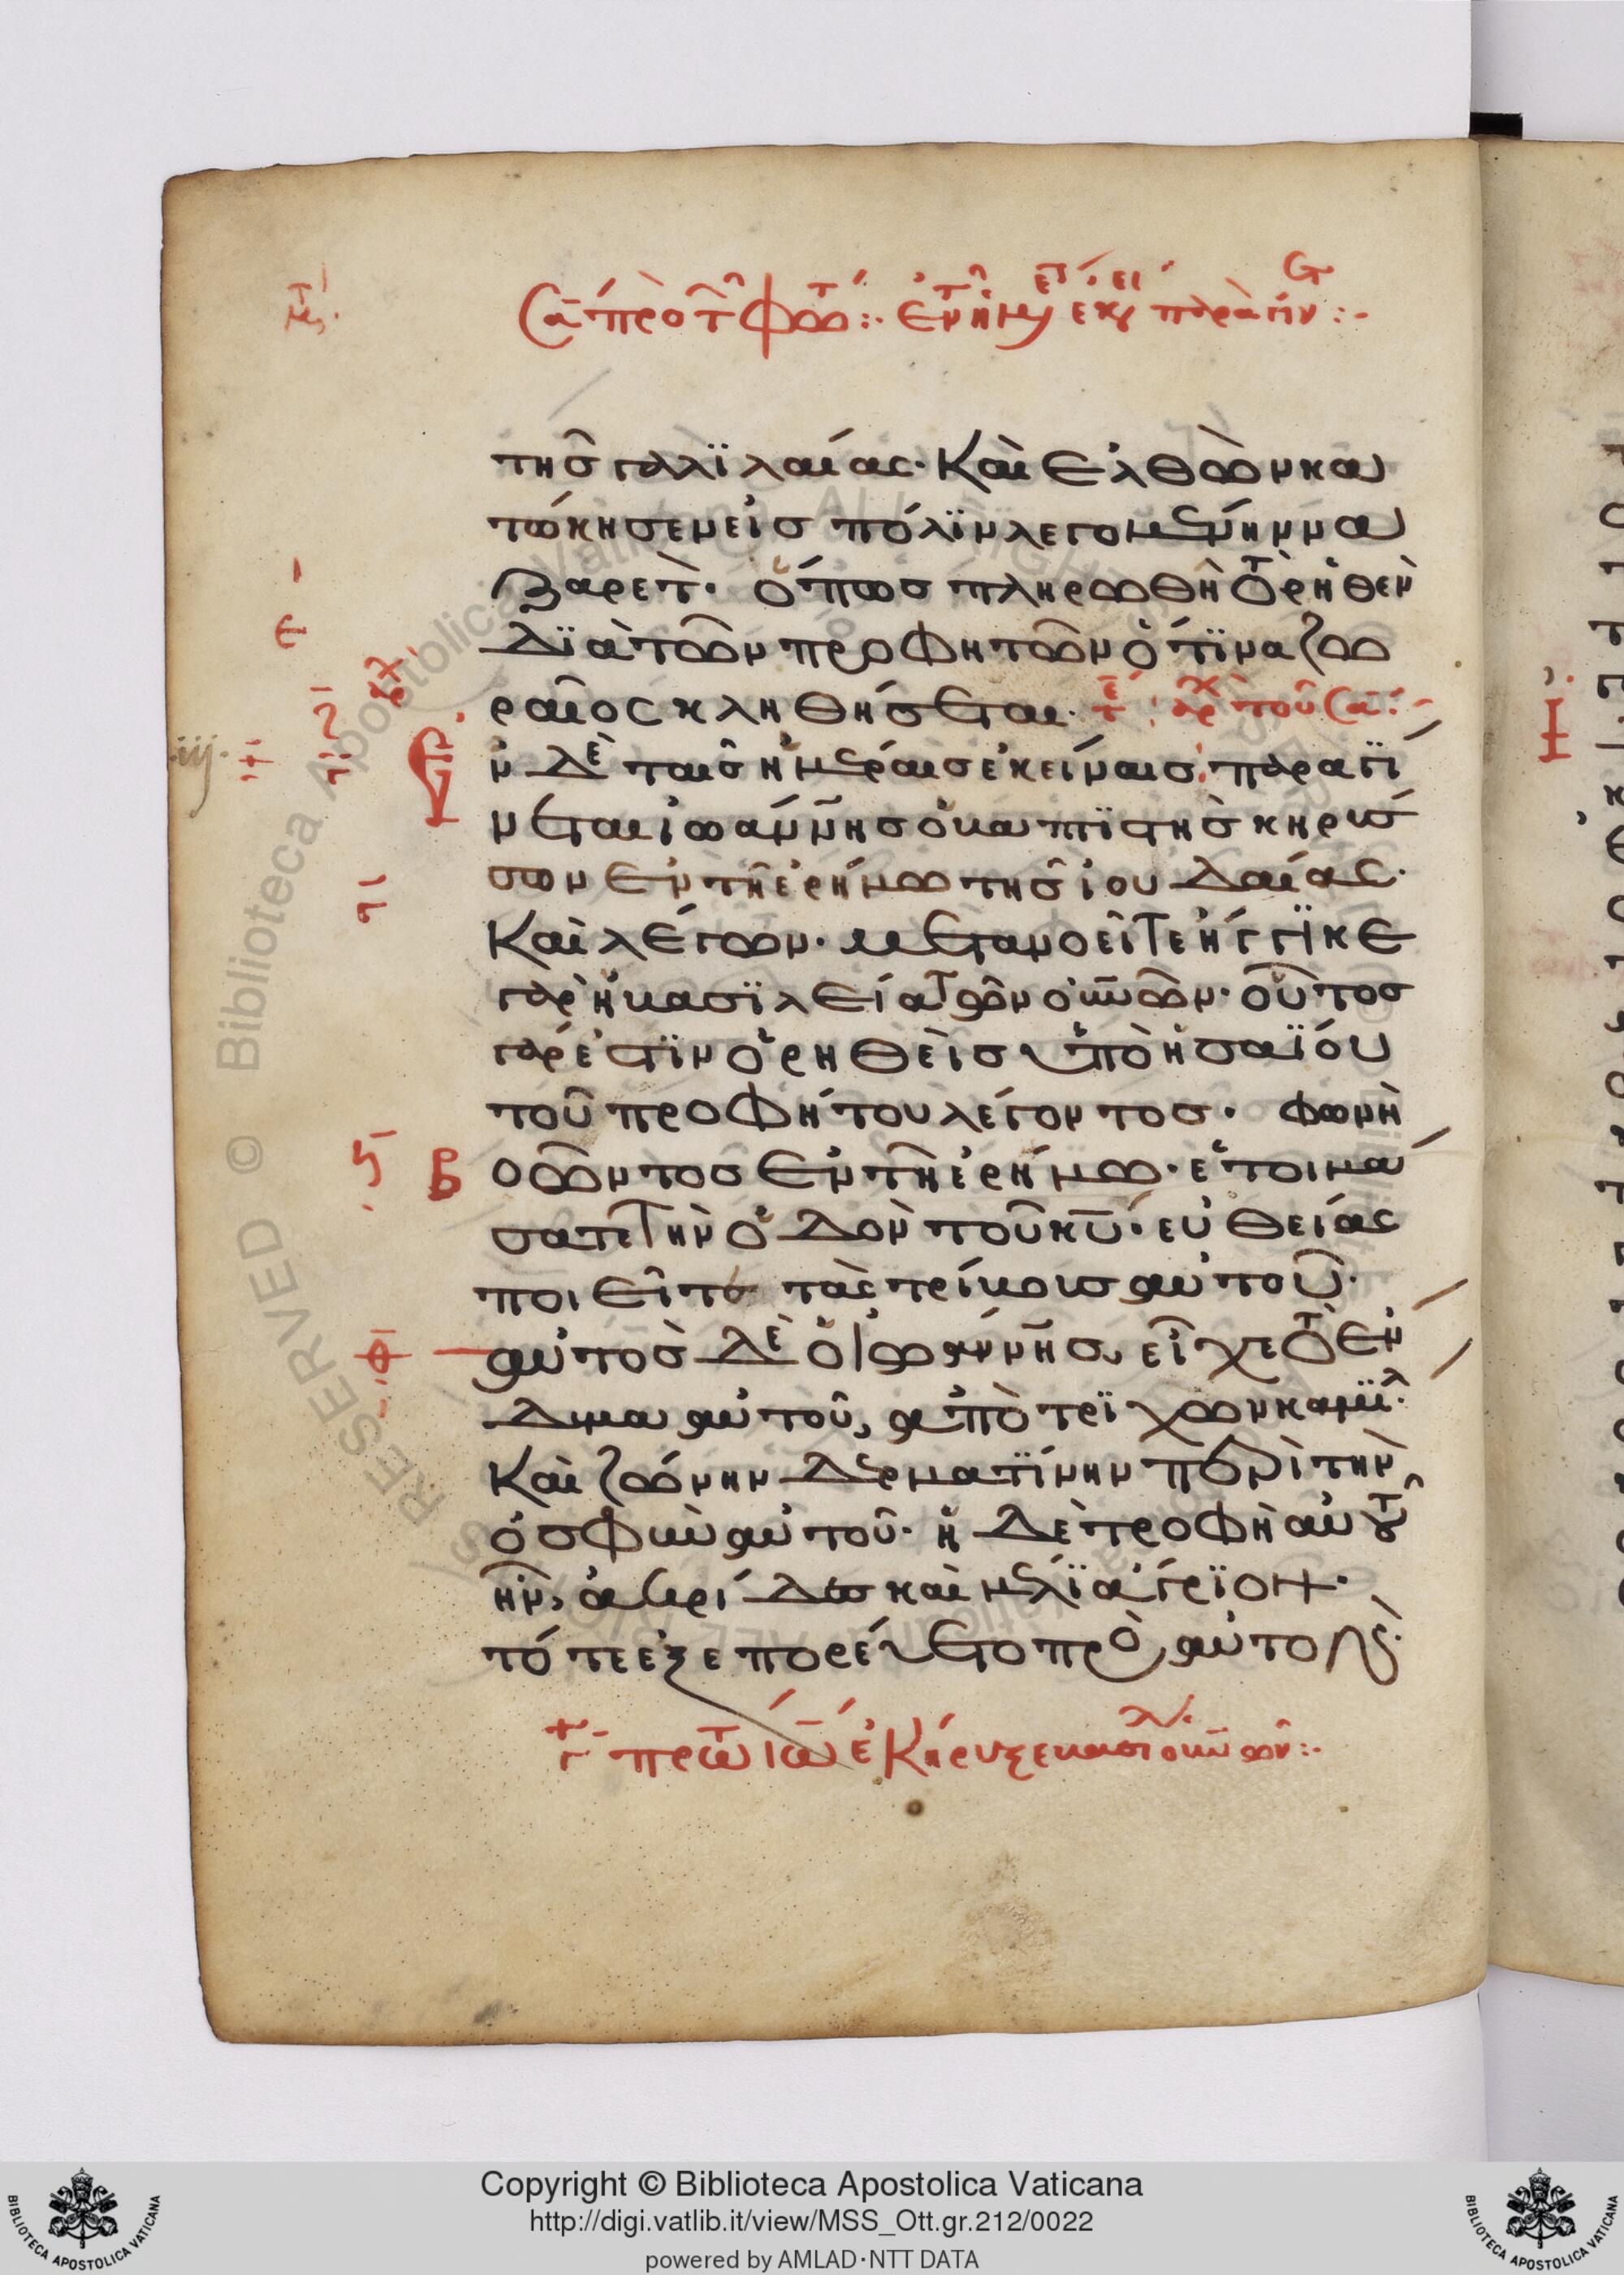 Σα προ τ φωτ :· εν τ ημ εκει παραγιν :·
της γαλϊλαίας· Καὶ ἐλθὼν κα
τώκησεν εἰσ πόλϊν λεγομένην να
ζαρετ· ὅπως πληρωθῆ τὸ ρηθὲν
δϊὰ τῶν προφητῶν ὅτϊ ναζω
ραῖος κληθήσεται· τε αρχ του Σα
ν δὲ ταῖς ἡμέραισ ἐκείναισ· παραγί
νεται ἰωάννησ ὁ βαπτϊστὴσ κηρύσ
σων ἐν τῆ ἐρήμω τῆσ ἰουδαίας·
Καὶ λέγων· μετανοεῖτε ἤγγϊκε
γὰρ ἡ βασϊλεία τῶν οὐνῶν· οὗτοσ
γάρ ἐστϊν ὁ ρηθεὶσ ὑπὸ ἡσαϊου
τοῦ προφήτου λέγοντοσ· φωνὴ
βοῶντοσ ἐν τῆ ἐρήμω· ἑτοιμά
σατε τὴν ὁδὸν κῡ· εὐθείας
ποιεῖτε τὰς τρίβους αὐτοῦ·
αὐτὸσ δὲ ὁ ἰωάννησ, εἶχε τὸ ἔν
δυμα αὐτοῦ, ἀπὸ τρϊχῶν καμήλ·
Καὶ ζώνην δερματϊνην περὶ τὴν
ὀσφὺν αὐτοῦ· ἡ δὲ τροφὴ αὐτοῦ
ἦν, ἀκρίδες καὶ μέλϊ ἄγρϊον·
τότε ἐξεπορεύετο πρὸς αὐτὸν
Copyright © Biblioteca Apostolica Vaticana
http://digi.vatlib.it/view/MSS_Ott.gr.212/0022
powered by AMLAD·NTT DATA